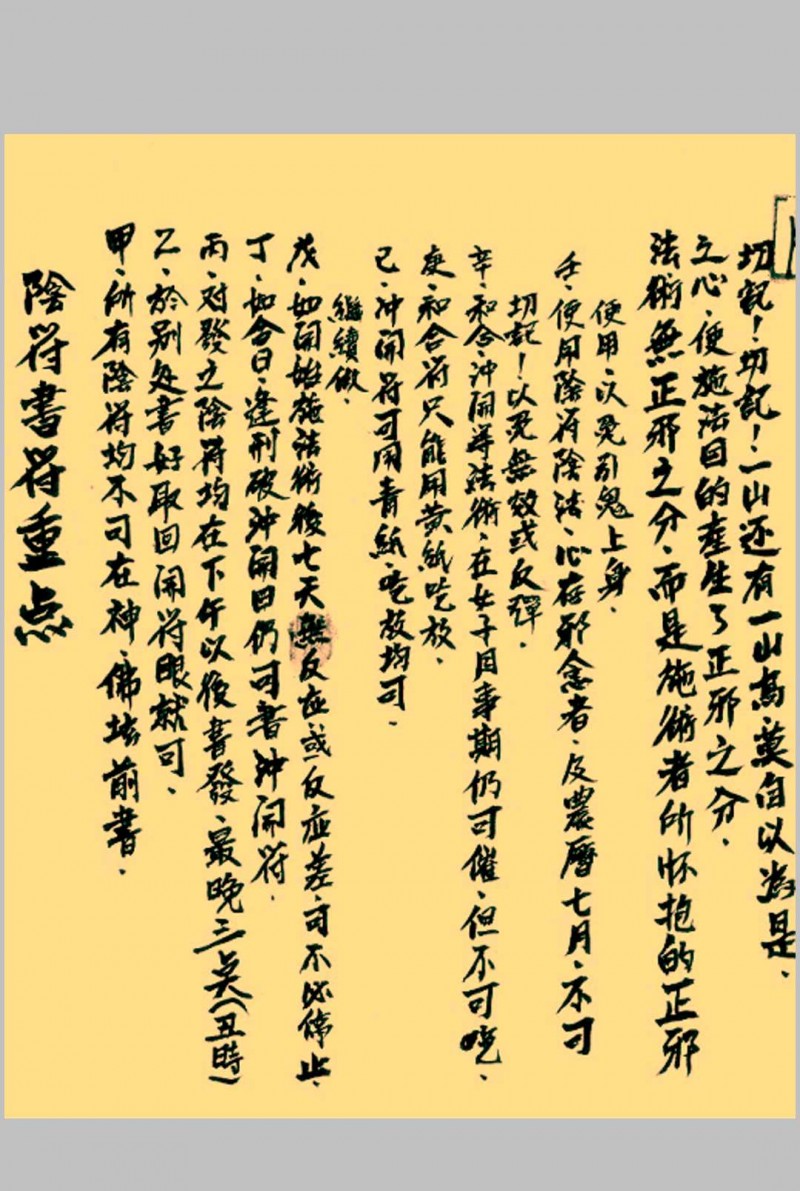 陰符書符重点
甲、所有陰符均不可在神、佛坛前書.
乙、於别处書好取回開符眼就可.
丙、对發之陰符均在下午以後書發、最晚三点(丑時)
丁、如合日、逢刑破沖開日仍可書沖開符.
戊、如開始施法術後七天無反应或反应差、可不必停止、
繼續做.
己、冲開符可用青紙、吃放均可.
庚、和合符只能用黄紙吃放.
辛、和合、沖開等法術、在女子月事期仍可催、但不可吃.
切記!以免無效或反彈.
壬、便用陰符陰法、心在邪念者、及農曆七月、不可
便用、以免引鬼上身.
法術無正邪之分、而是施術者所怀抱的正邪
之心、便施法目的產生了正邪之分.
切記!切記!一山还有一山高、莫自以為是.